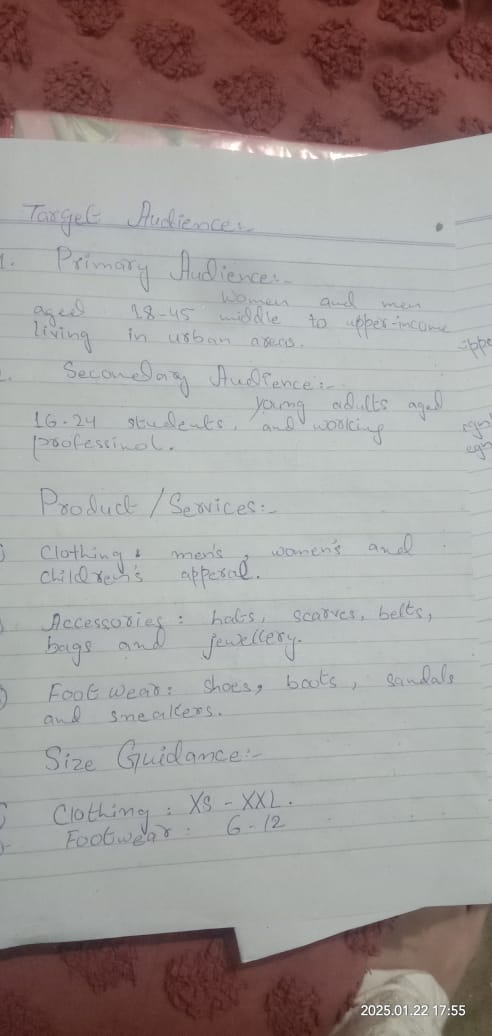 Target Audience:-
1. Primary Audience:-
Women and men
aged 18-45 middle to upper-income
living in urban areas.
Secondary Audience:-
young adults aged
16-24 students, and working
professinol.
Product / Services:-
Clothing : men's, women's and
children's apperal.
Accessories : hats, scarves, belts,
bags and jewellery.
Foot wear : shoes, boots, sandals
and sneakers.
Size Guidance:-
Clothing : XS - XXL.
Footwear : 6-12
2025.01.22 17:55